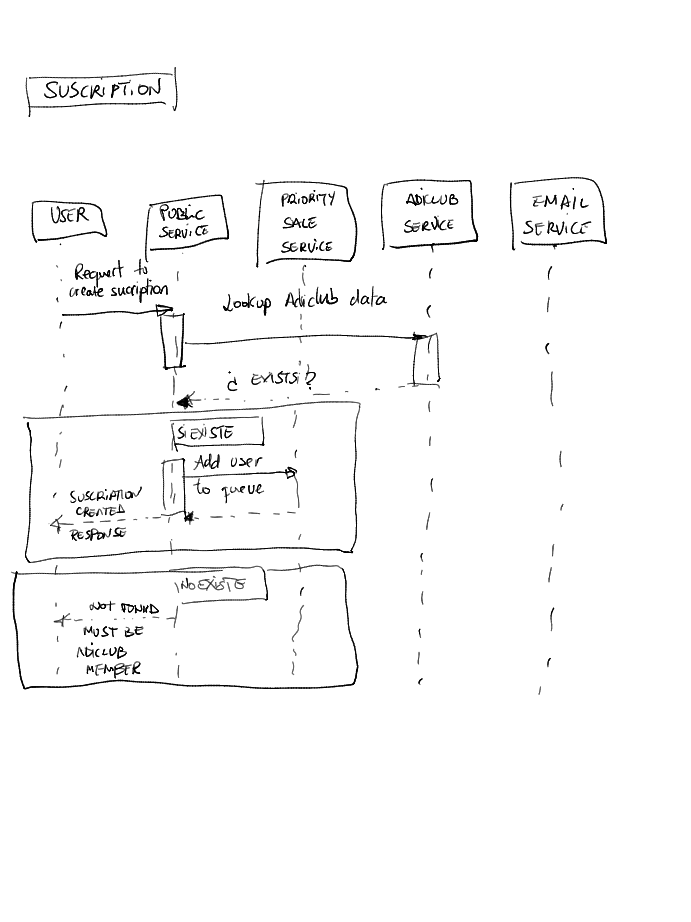 SUSCRIPTION
USER
PUBLIC
SERVICE
PRIORITY
SALE
SERVICE
ADICLUB
SERVICE
EMAIL
SERVICE
Request to
create sucription
Lookup Adiclub data
¿ EXISTS ?
SI EXISTE
Add user
to queue
SUSCRIPTION
CREATED
RESPONSE
NO EXISTE
NOT FOUND
MUST BE
ADICLUB
MEMBER